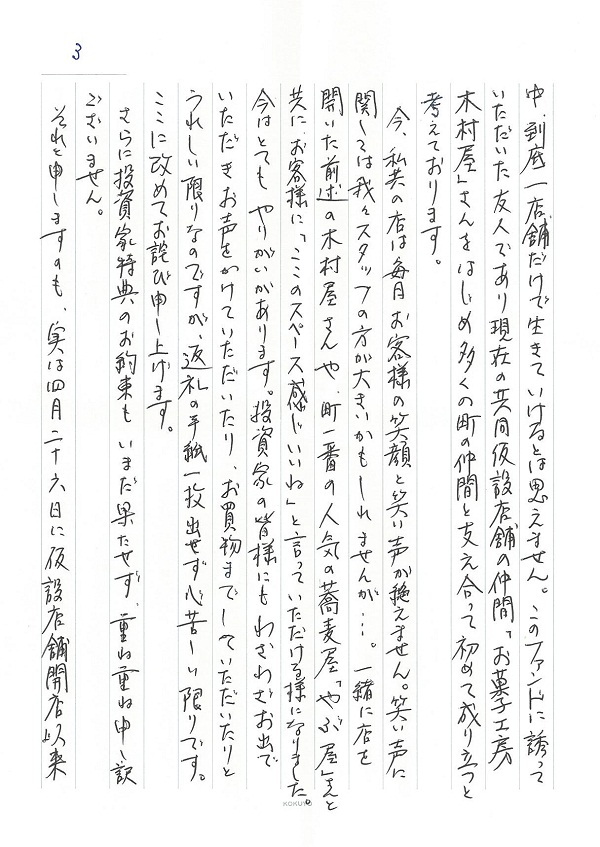 3
中、到底一店舗だけで生きていけるとは思えません。このファンドに誘って
いただいた友人であり現在の共同仮設店舗の仲間、「お菓子工房
木村屋」さんをはじめ多くの町の仲間と支え合って初めて成り立つと
考えております。
今、私共の店は毎日お客様の笑顔と笑い声が絶えません。笑い声に
関しては我々スタッフの方が大きいかもしれませんが…。一緒に店を
開いた前述の木村屋さんや、町一番の人気の蕎麦屋「やぶ屋」さんと
共に、お客様に「ここのスペース感じいいね」と言っていただける様になりました。
今はとてもやりがいがあります。投資家の皆様にもわざわざお出で
いただきお声をかけていただいたり、お買物までしていただいたりと
うれしい限りなのですが、返礼の手紙一枚出せず心苦しい限りです。
ここに改めてお詫び申し上げます。
さらに投資家特典のお約束もいまだ果たせず、重ね重ね申し訳
ございません。
それと申しますのも、実は四月二十六日に仮設店舗開店以来
KOKUYO